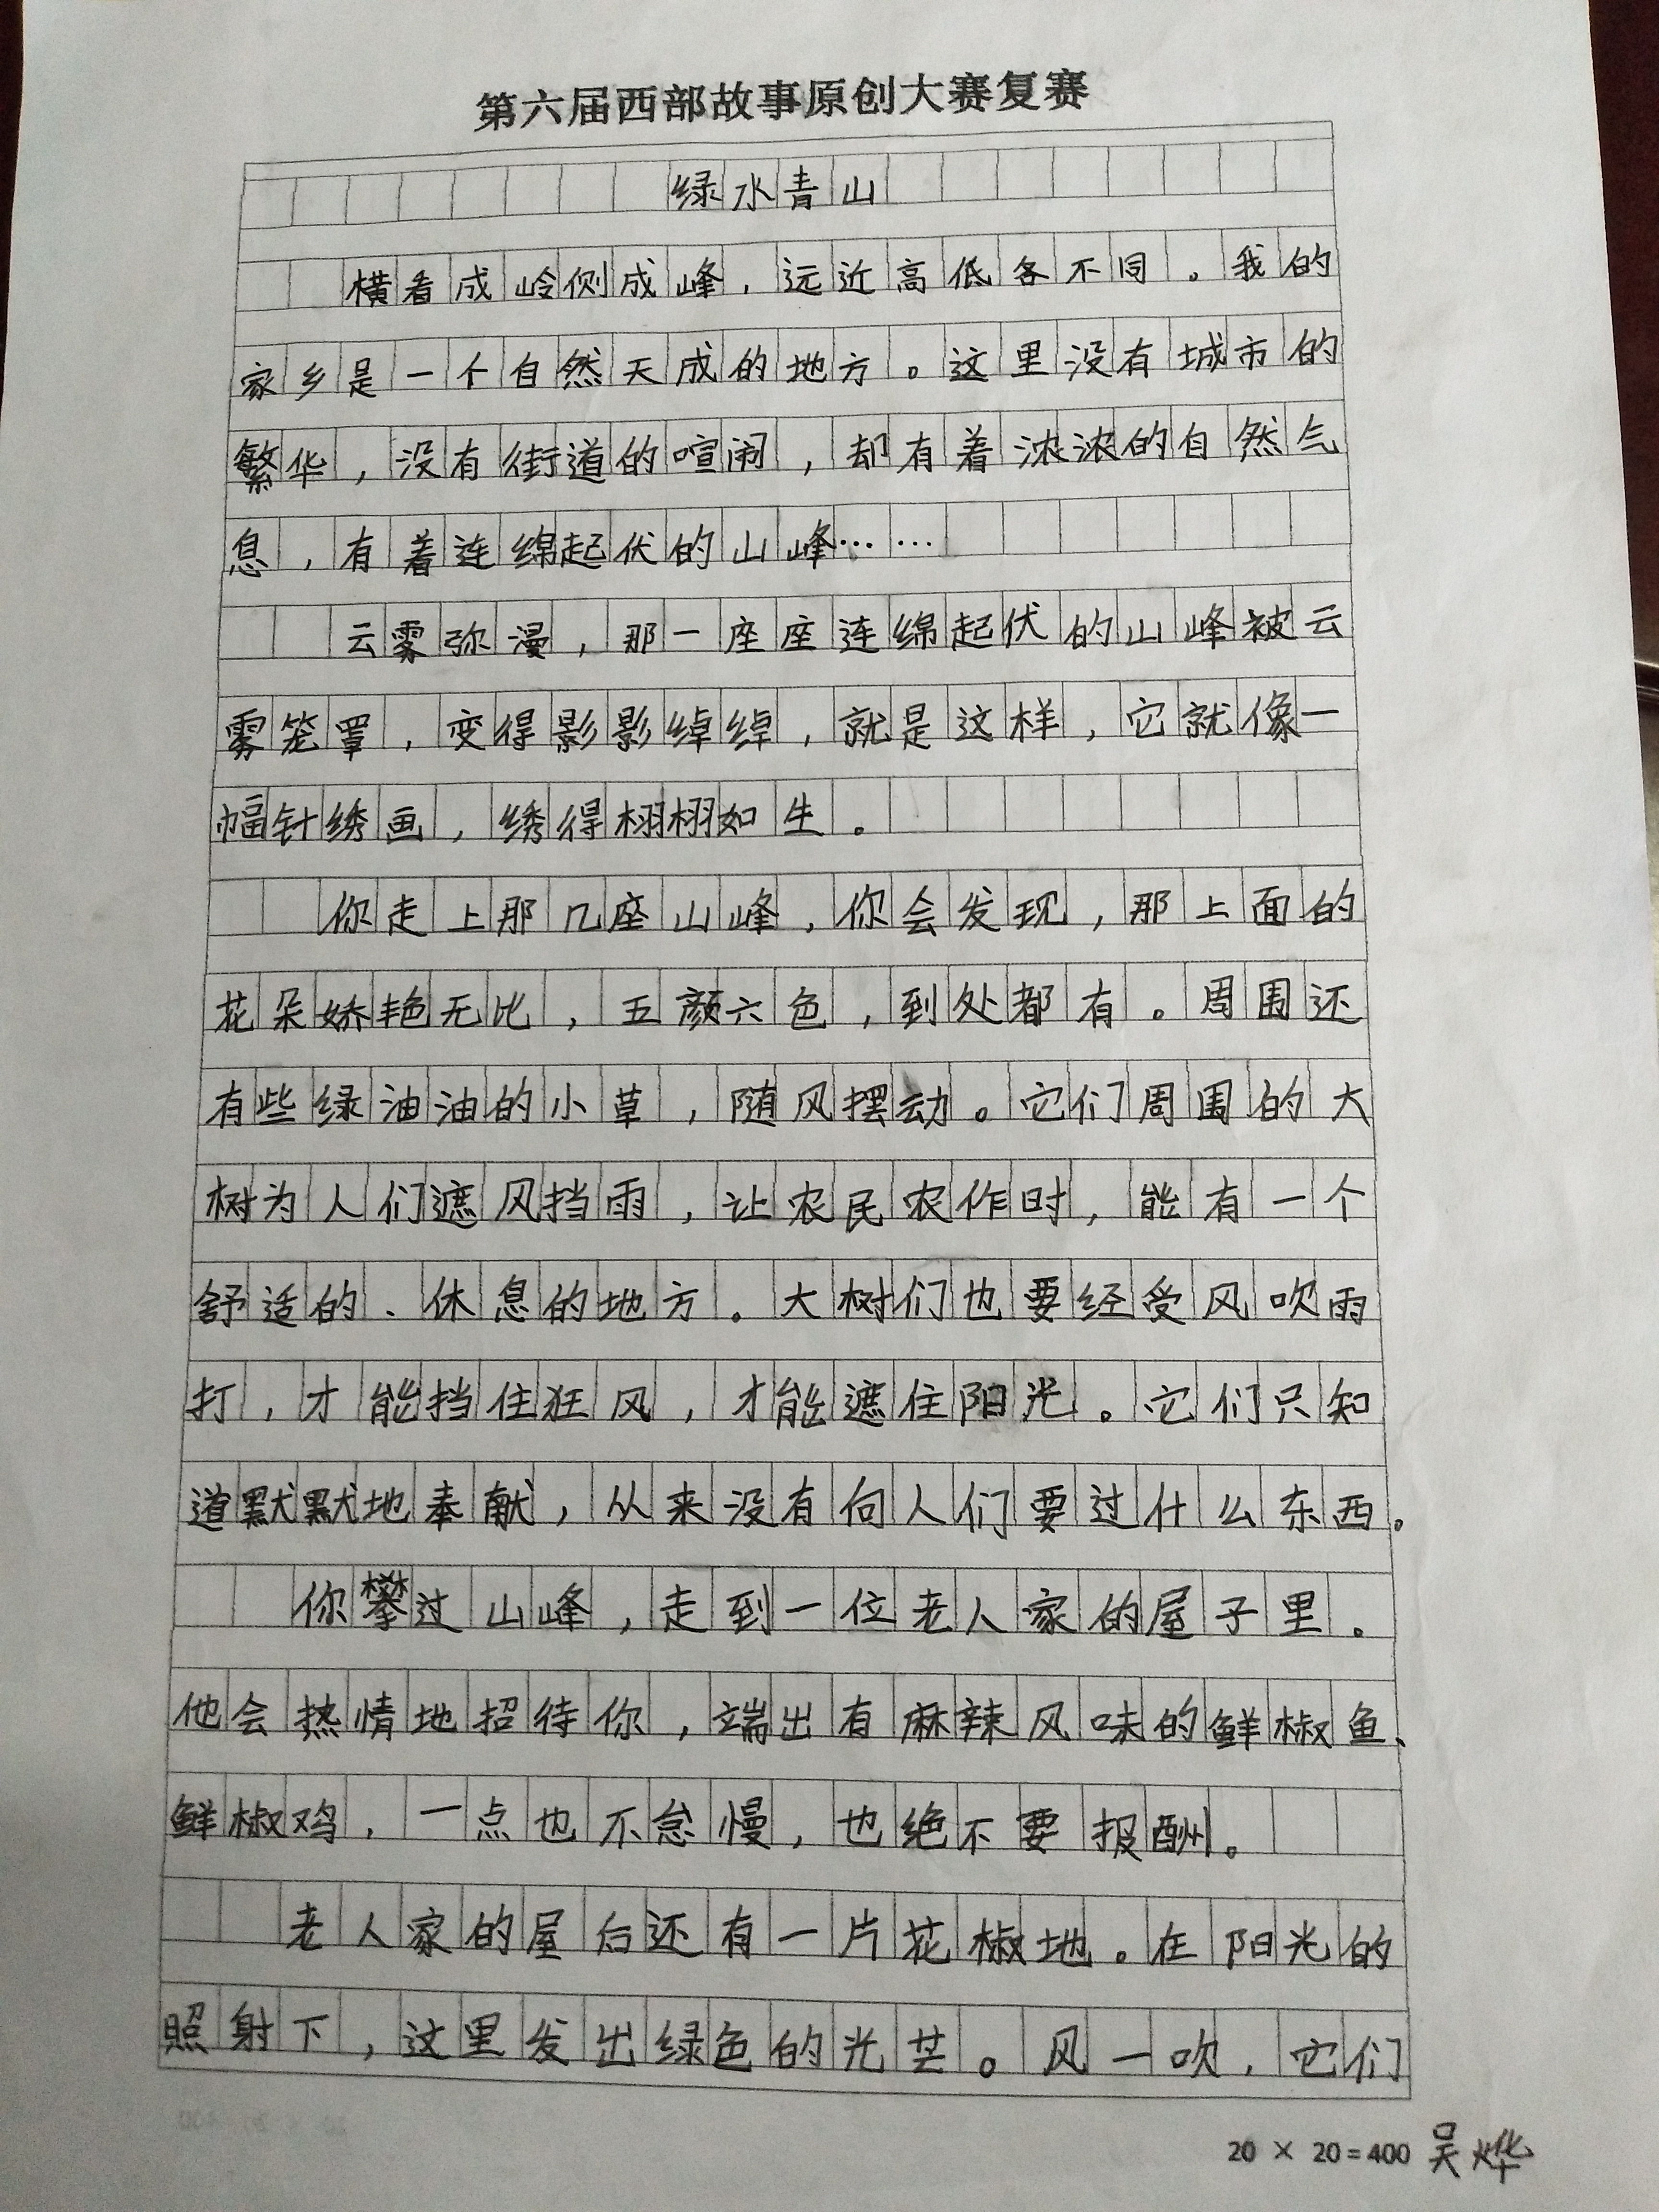 第六届西部故事原创大赛复赛
绿水青山
横看成岭侧成峰，远近高低各不同。我的
家乡是一个自然天成的地方。这里没有城市的
繁华，没有街道的喧闹，却有着浓浓的自然气
息，有着连绵起伏的山峰……
云雾弥漫，那一座座连绵起伏的山峰被云
雾笼罩，变得影影绰绰，就是这样，它就像一
幅针绣画，绣得栩栩如生。
你走上那几座山峰，你会发现，那上面的
花朵娇艳无比，五颜六色，到处都有。周围还
有些绿油油的小草，随风摆动。它们周围的大
树为人们遮风挡雨，让农民农作时，能有一个
舒适的、休息的地方。大树们也要经受风吹雨
打，才能挡住狂风，才能遮住阳光。它们只知
道默默地奉献，从来没有向人们要过什么东西。
你攀过山峰，走到一位老人家的屋子里。
他会热情地招待你，端出有麻辣风味的鲜椒鱼、
鲜椒鸡，一点也不怠慢，也绝不要报酬。
老人家的屋后还有一片花椒地。在阳光的
照射下，这里发出绿色的光芒。风一吹，它们
20 × 20=400 吴烨